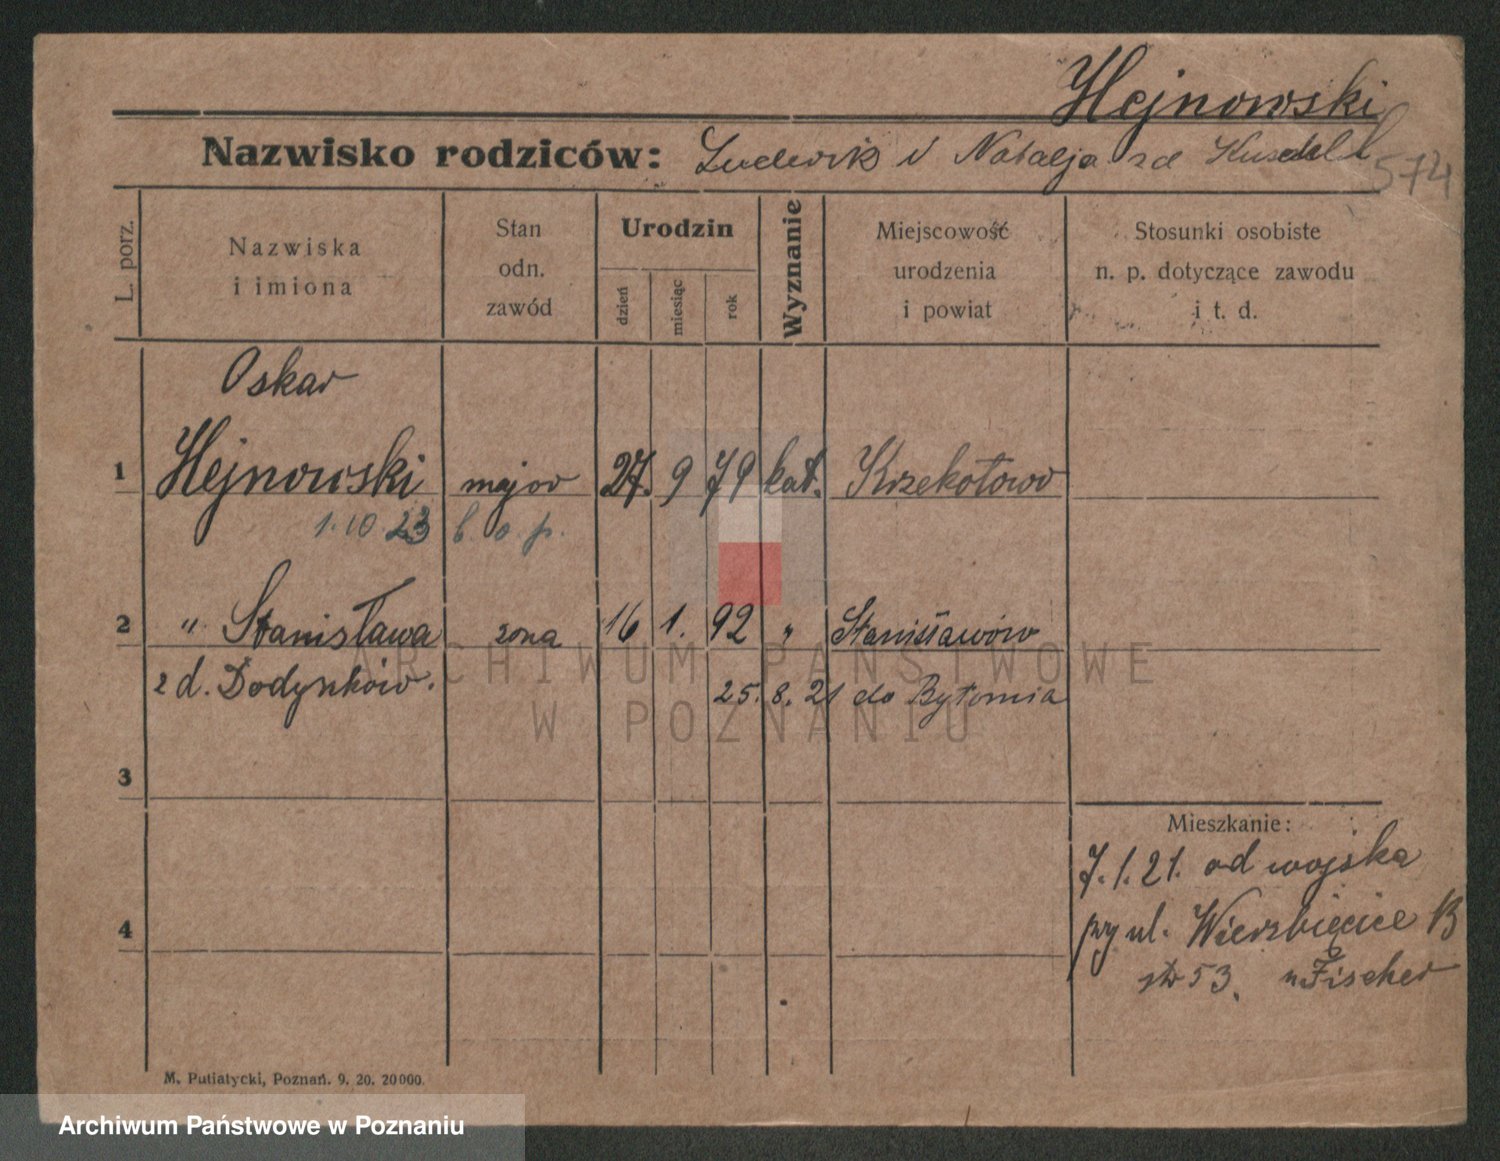 Hejnowski
Nazwisko rodziców: Ludwik i Natalja zd
574
L. porz.
Nazwiska
i imiona
Stan
odn.
zawód
Urodzin
dzień
miesiąc
rok
Wyznanie
Miejscowość
urodzenia
i powiat
Stosunki osobiste
n. p. dotyczące zawodu
i t. d.
Oskar
1 Hejnowski major 27. 9 79 kat. Krzekotowo
1. 10 23 b. o. p.
2 " Stanisława żona 16 1. 92 " Stanisławów
z d. Dodynków. 25. 8. 21 do Bytomia
ARCHIWUM PAŃSTWOWE
W POZNANIU
3
Mieszkanie:
7. 1. 21. od wojska
4 przy ul. Wierzbięcice 13
str 53. u Fischer
M. Putiatycki, Poznań. 9. 20. 20000.
Archiwum Państwowe w Poznaniu